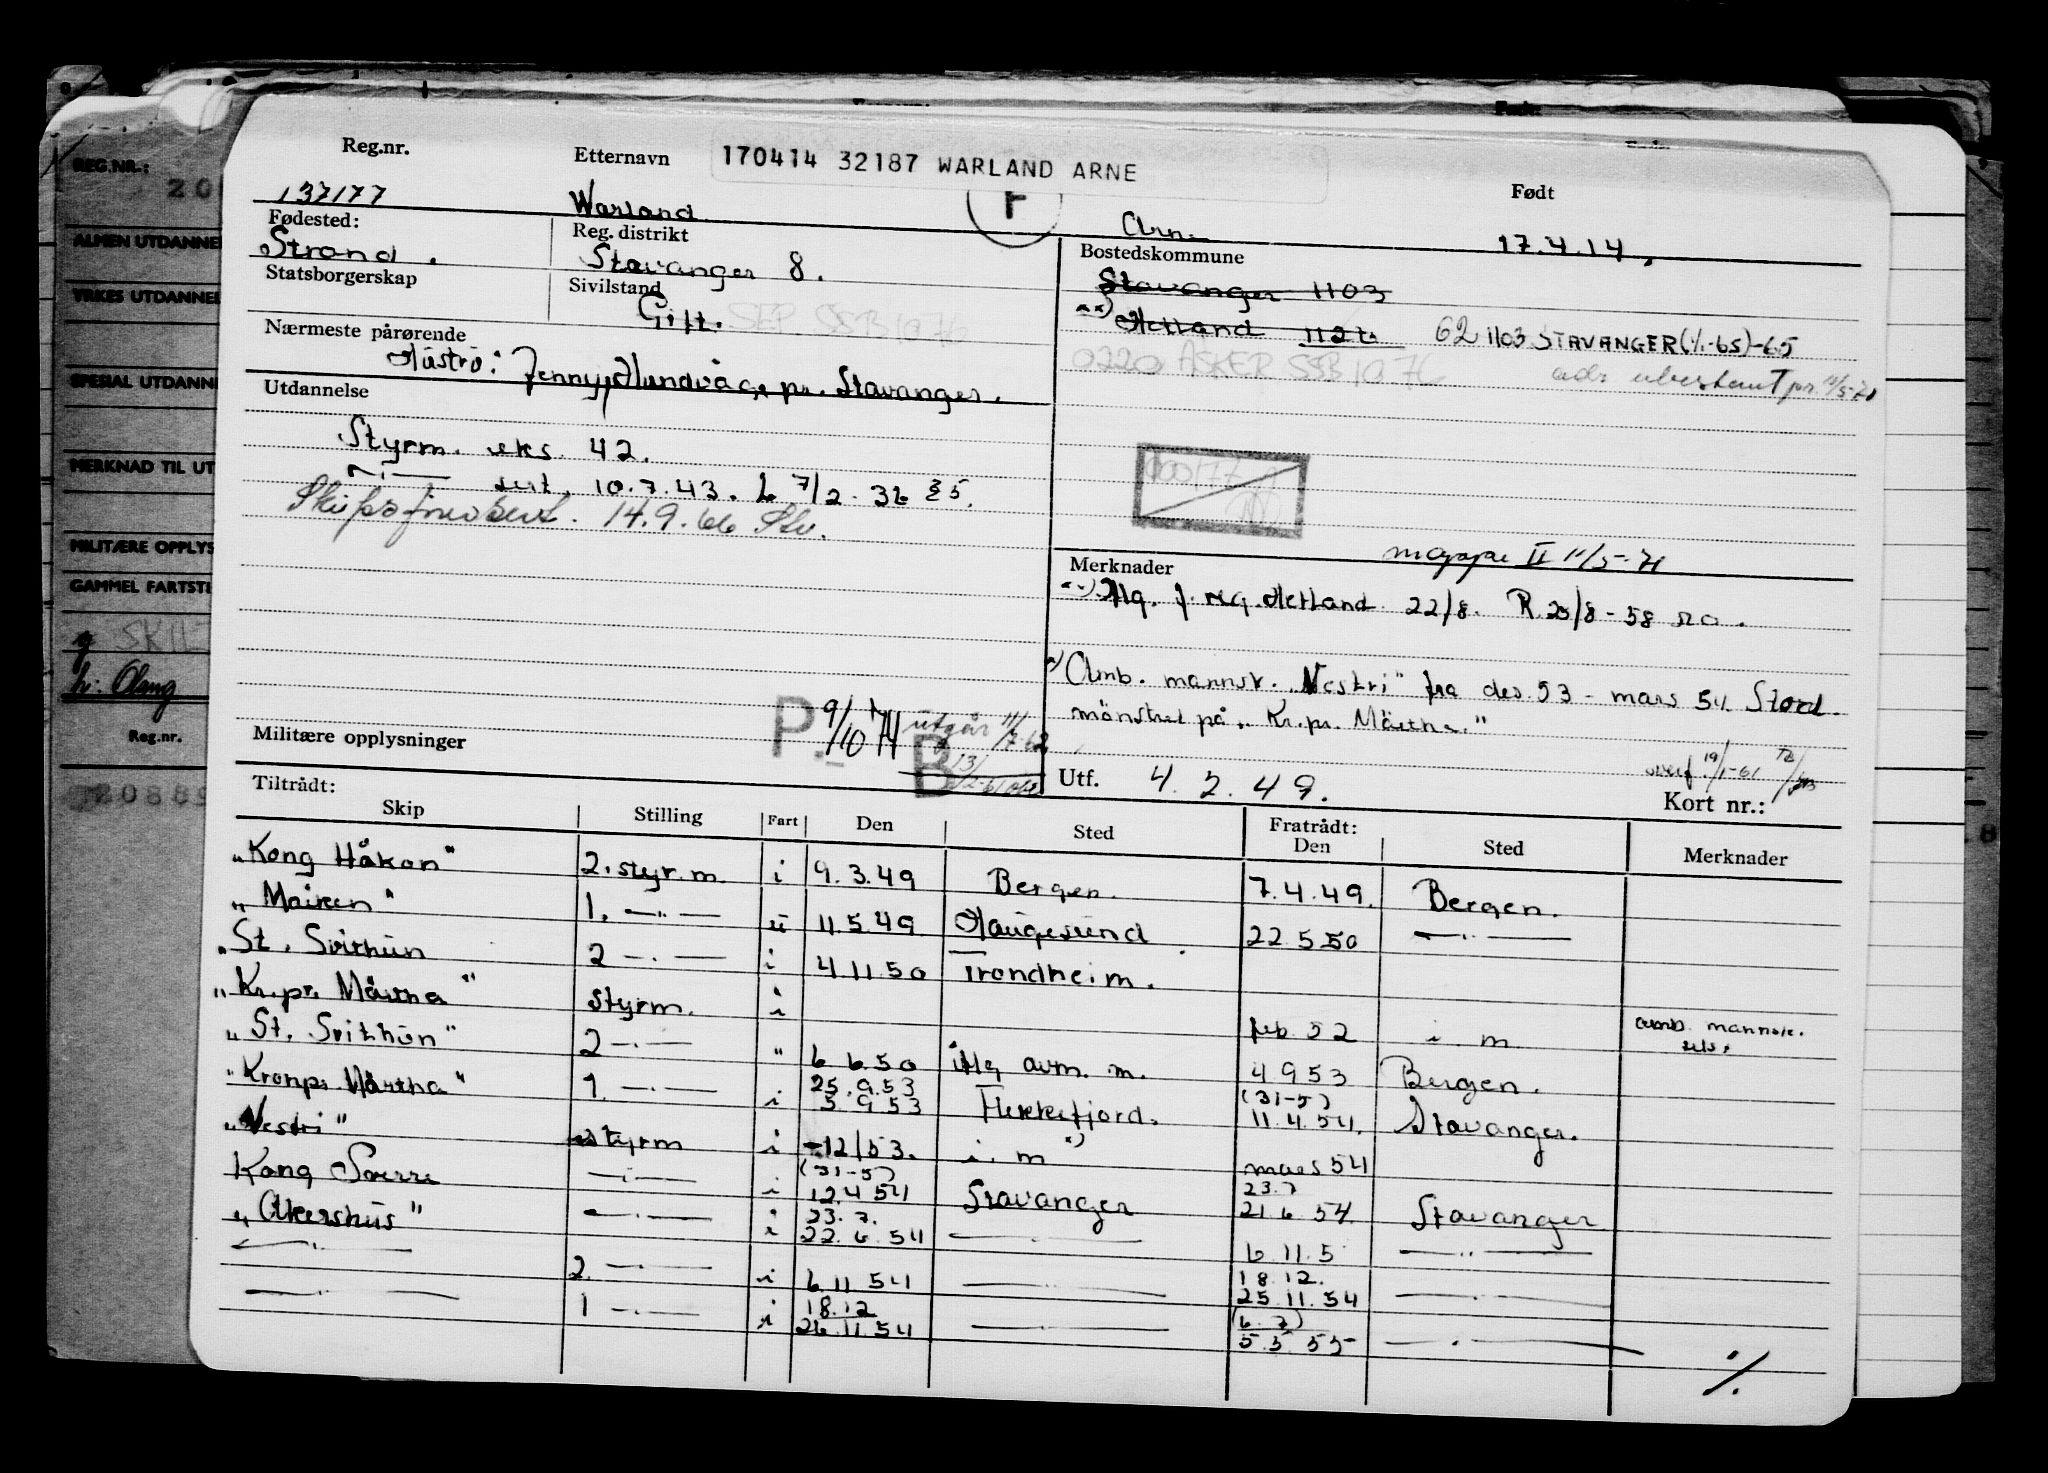 Reg.nr. Etternavn 170414 32187 WARLAND ARNE Født
137177 Warland F Arne 17.4.14.
Fødested: Reg. distrikt Bostedskommune
Strand. Stavanger 8. Stavanger 1103
Statsborgerskap Sivilstand
Gift. SEP. SSB 1976
xx) Hetland 1126 62 1103 STAVANGER (1/1-65)-65
0220 ASKER SSB 1976
adr ubestemt pr. 11/5-71
Nærmeste pårørende
Hustru: Jenny, Hundvåg pr. Stavanger.
Utdannelse
Styrm. eks. 42.
—"— sert. 10.7.43. L 7/2-36 § 5.
14.9.66 Stv.
mappe II 11/5-71
Merknader
xx) Flg. f. reg. Hetland 22/8. R. 28/8-58
x) Omb. mannsk. "Vestri" fra des 53 - mars 54. Stod
mönstret på "Kr.pr. Märtha."
P. 9/10 74 utgår 11/7 62
B
Militære opplysninger
Utf. 4.2.49.
overf. 19/1-61
Kort nr.:
Tiltrådt: Fratrådt:
Skip Stilling Fart Den Sted Den Sted Merknader
"Kong Håkon" 2. styrm. i 9.3.49 Bergen. 7.4.49. Bergen.
"Maiken" 1. —"— u 11.5.49 Haugesund 22.5.50 —"—
"St. Svithun 2 —"— i 4.11.50 Trondheim.
"Kr.pr. Märtha" styrm. i feb. 52 i. m omb. mannsk.
"St. Svithun" 2 —"— " 6 6.50 iflg avm. m. 4 9 53 Bergen.
"Kronpr. Märtha" 1. —"— i 25.9.53 5.9.53 Flekkefjord. (31-5) 11.4.54. Stavanger.
"Vestri" styrm i -12/53. i. m x) mars 54
Kong Sverre —"— i (31-5) 12.4 54 Stavanger 23.7 21.6.54. Stavanger
"Akershus" —"— i 23.7. 22.6.54 —"— 6.11.5 —"—
—"— 2. —"— i 6.11 54 —"— 18.12. 25.11.54 —"—
—"— 1 —"— i 18.12 26.11.54 —"— (6.7) 5.5.55 —"—
·/.
REG.NR.:
ALMEN UTDANNE
YRKES UTDANNEL
SPESIAL UTDANN
MERKNAD TIL UT
MILITÆRE OPPLYS
GAMMEL FARTSTI
Reg.nr.